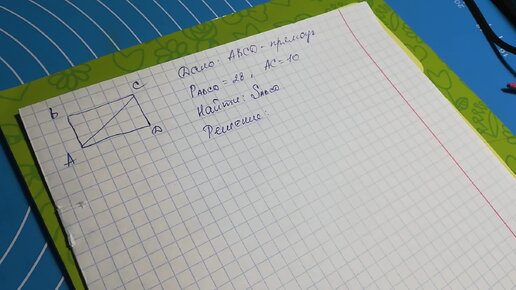 Дано ABCD - прямоуг
P ABCD = 28, AC = 10
Найти: S ABCD
Решение:
B
C
A
D